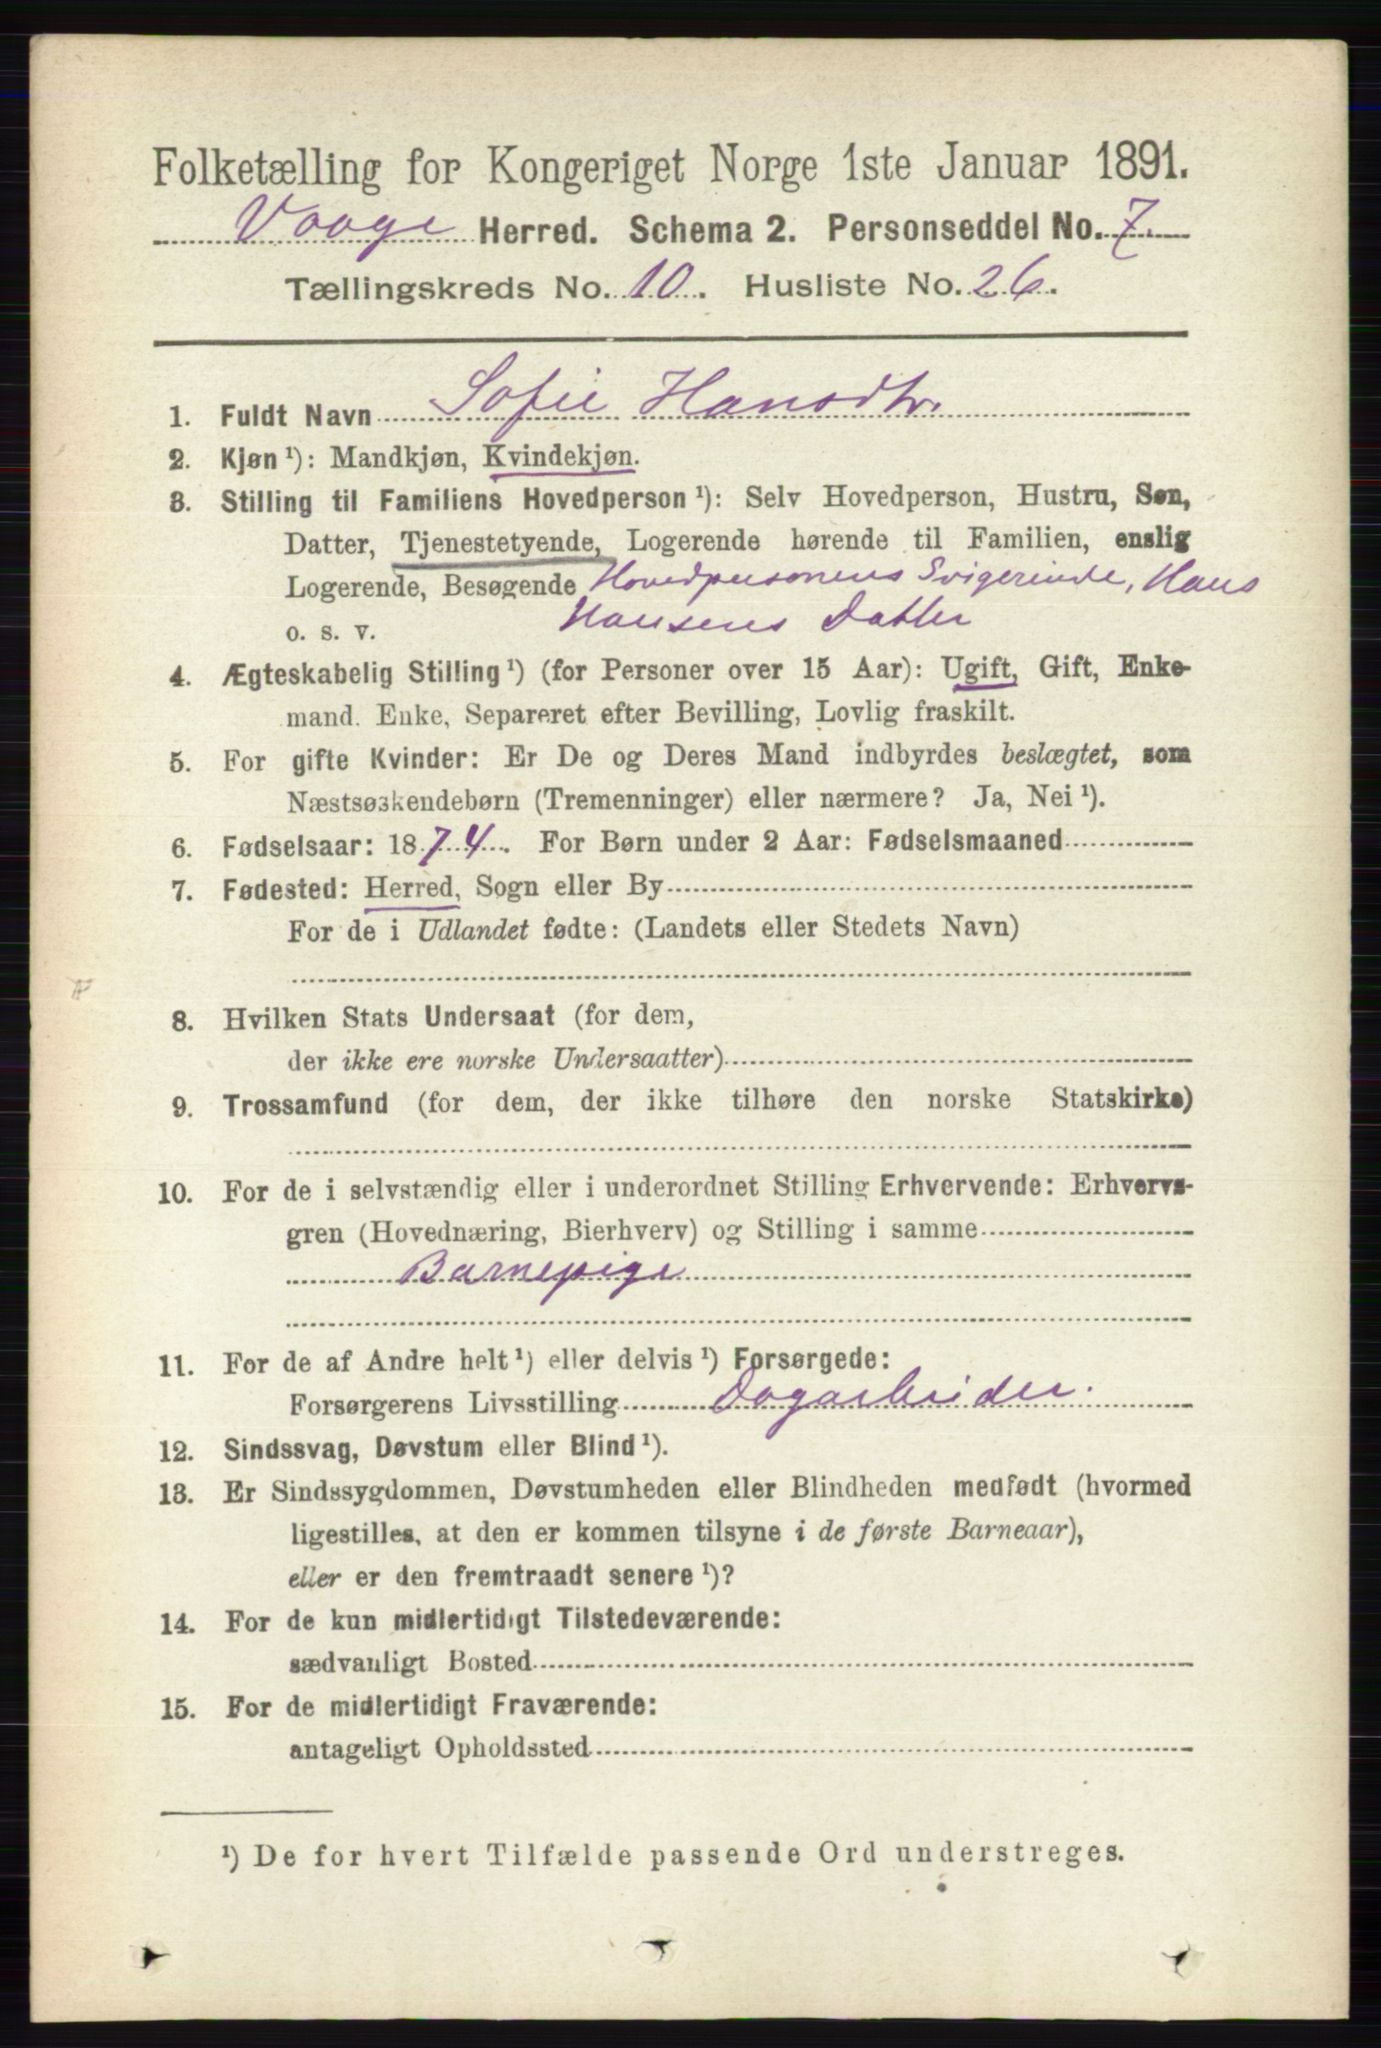 Folketælling for Kongeriget Norge 1ste Januar 1891.
Vaage Herred. Schema 2. Personseddel No. 7.
Tællingskreds No. 10. Husliste No. 26.
1. Fuldt Navn Sofie Hansdtr.
2. Kjøn ¹): Mandkjøn, Kvindekjøn.
3. Stilling til Familiens Hovedperson ¹): Selv Hovedperson, Hustru, Søn,
Datter, Tjenestetyende, Logerende hørende til Familien, enslig
Logerende, Besøgende Hovedpersonens Svigerinde, Hans
o. s. v. Hansens Datter
4. Ægteskabelig Stilling ¹) (for Personer over 15 Aar): Ugift, Gift, Enke-
mand. Enke, Separeret efter Bevilling, Lovlig fraskilt.
5. For gifte Kvinder: Er De og Deres Mand indbyrdes beslægtet, som
Næstsøskendebørn (Tremenninger) eller nærmere? Ja, Nei ¹).
6. Fødselsaar: 1874. For Børn under 2 Aar: Fødselsmaaned
7. Fødested: Herred, Sogn eller By
For de i Udlandet fødte: (Landets eller Stedets Navn)
8. Hvilken Stats Undersaat (for dem,
der ikke ere norske Undersaatter)
9. Trossamfund (for dem, der ikke tilhøre den norske Statskirke)
10. For de i selvstændig eller i underordnet Stilling Erhvervende: Erhvervs-
gren (Hovednæring, Bierhverv) og Stilling i samme
Barnepige
11. For de af Andre helt ¹) eller delvis ¹) Forsørgede:
Forsørgerens Livsstilling Dagarbeider.
12. Sindssvag, Døvstum eller Blind ¹).
13. Er Sindssygdommen, Døvstumheden eller Blindheden medfødt (hvormed
ligestilles, at den er kommen tilsyne i de første Barneaar),
eller er den fremtraadt senere ¹)?
14. For de kun midlertidigt Tilstedeværende:
sædvanligt Bosted
15. For de midlertidigt Fraværende:
antageligt Opholdssted
¹) De for hvert Tilfælde passende Ord understreges.